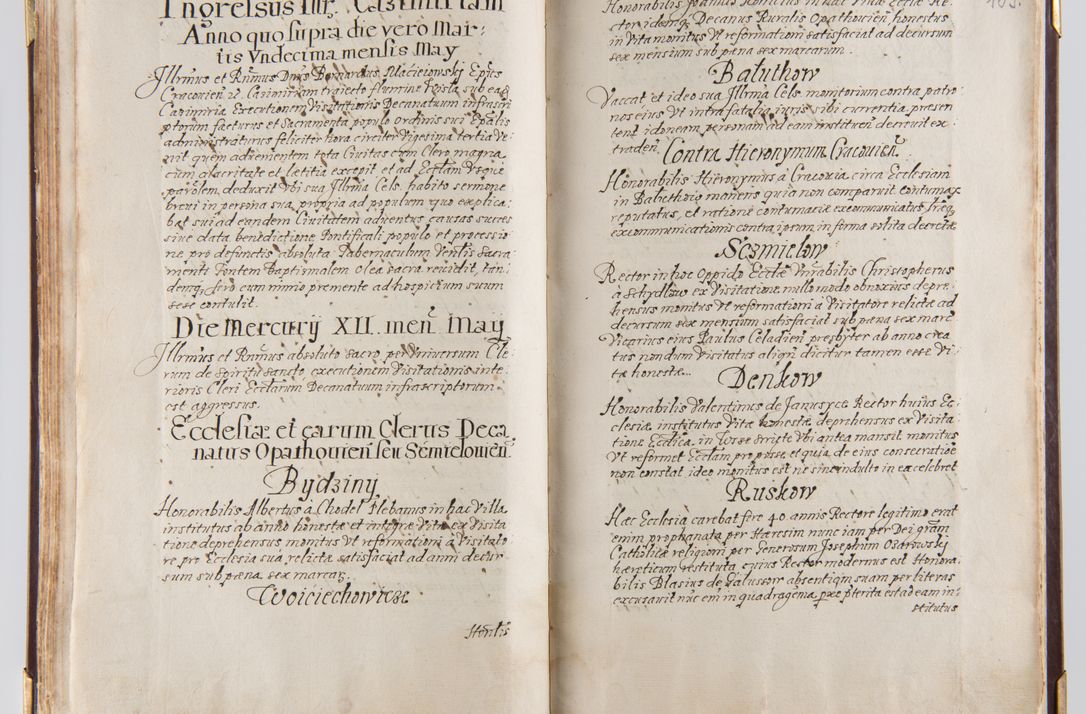 Ingressus Illr. Casimiriam
Anno quo supra die vero Mar:
tis Vndecima mensis May
Illrmus et Rnmus Dnus Bernardus Macieiowskj Epus
Cracovien Casimiriam traiecto flumine Visla sub ea
Casimiria Executionem Visitationis Decanatuum infrascri
ptorum facturus et Sacramenta populo Ordinis sui Epalis
administraturus feliciter hora circiter Vigesima tertia Ve
nit quem advenientem tota Civitas cum Clero magna
cum alacritate et lætitia excepit et ad Ecclam Vsque
parolem deduxit Vbi sua Illrma Cels. habito sermone
brevi in persona sua propria ad populum quo explica:
bat sui ad eandem Civitatem adventus causas succes
sive data benedictione Pontificali populo et processio
ne pro defunctis absoluta Tabernaculum Ven̄tis Sacra
menti Fontem baptismalem Olea sacra revidit, tan
demq, sero cum nimio premente ad hospitium suum
sese contulit.
Die Mercurij XII. men̄ May
Illrmus et Rnmus absoluto sacro per Vniversum Cle:
rum de Spiritu sancto executionem Visitationis inte:
rioris Cleri Ecclarum Decanatuum infrascriptorum
est aggressus.
Ecclesiæ et earum Clerus Deca
natus Opathovien seu Semielovien
Bydziny
Honorabilis Albertus à Chodel Plebanus in hac Villa
institutus ab anno honestæ et integræ Vitæ ex Visita
tione deprehensus monitus Vt reformationi à Visitato
re pro Ecclesia sua relictæ satisfaciat ad anni decur
sum sub pæna sex marcar.
Woiciechowicze
Hon̄lis
103.
Honorabilis Joannis in hac Villa Ecclæ Re:
ctor idemq, Decanus Ruralis Opathovien, honestus
in Vita monitus Vt reformationi satisfaciat ad decursum
sex mensium sub pæna sex marcarum.
Baluthow
Vaccat, et ideo sua Illrma Cels. monitorium contra patro
nos eius Vt intra fatalia iuris sibi currentia præsen
tent idoneam personam ad eam instituen̄ decrevit ex
traden̄.
Contra Hieronymum Cracovien̄
Honorabilis Hieronymus à Cracovia circa Ecclesiam
in Baluthow manens quia non comparuit contumax
reputatus, et ratione contumaciæ excommunicatus,
excommunicationis contra ipsum in forma solita decretæ
Sczmielow
Rector in hoc Oppido Ecclæ Vnrabilis Christopherus
à Schydlow ex Visitatione nullo modo obnoxius depre:
hensus monitus Vt reformationi à Visitatore relictæ ad
decursum sex mensium satisfaciat sub pæna sex marc
Vicarius eius Paulus Celadien̄ presbyter ab anno crea
tus nondum Visitatus aliqn̄ dicitur tamen esse Vi
tæ honestæ...
Denkow
Honorabilis Valentinus de Janusyce Rector huius Ec
clesiæ institutus Vitæ honestæ deprehensus ex Visita
tione Ecclica, in Vbi antea mansit monitus
Vt reformet Ecclam pro posse et quia de eius consecratioē
non constat ideo monitus est ne sine indulto in ea celebret
Ruskow
Hæc Ecclesia carebat fere 40. annis Rectore legitimo erat
enim prophanata per Hæresim nunc iam per Dei gram
Catholicæ religioni per Generosum Josephum Osarowskj
hæreticum restituta cuius Rector modernus est Honora
bilis Blasius de Valussow absentiam suam per literas
excusavit nūc em in quadragesima præterita est ad eam in:
stitutus